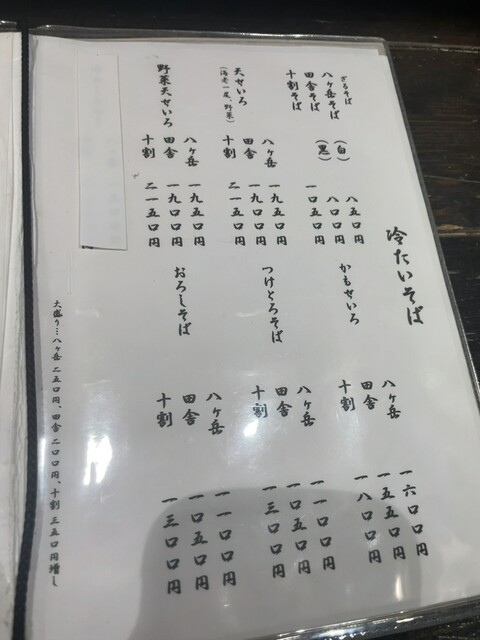 冷たいそば
ざるそば
八ヶ岳そば (白) 八五〇円
田舎そば (黒) 八〇〇円
十割そば 一〇五〇円
天せいろ
(海老一尾、野菜)
八ヶ岳 一九五〇円
田舎 一九〇〇円
十割 二一五〇円
野菜天せいろ
八ヶ岳 一九五〇円
田舎 一九〇〇円
十割 二一五〇円
かもせいろ
八ヶ岳 一六〇〇円
田舎 一五五〇円
十割 一八〇〇円
つけとろそば
八ヶ岳 一一〇〇円
田舎 一〇五〇円
十割 一三〇〇円
おろしそば
八ヶ岳 一一〇〇円
田舎 一〇五〇円
十割 一三〇〇円
大盛り…八ヶ岳 二五〇円、田舎 二〇〇円、十割 三五〇円増し